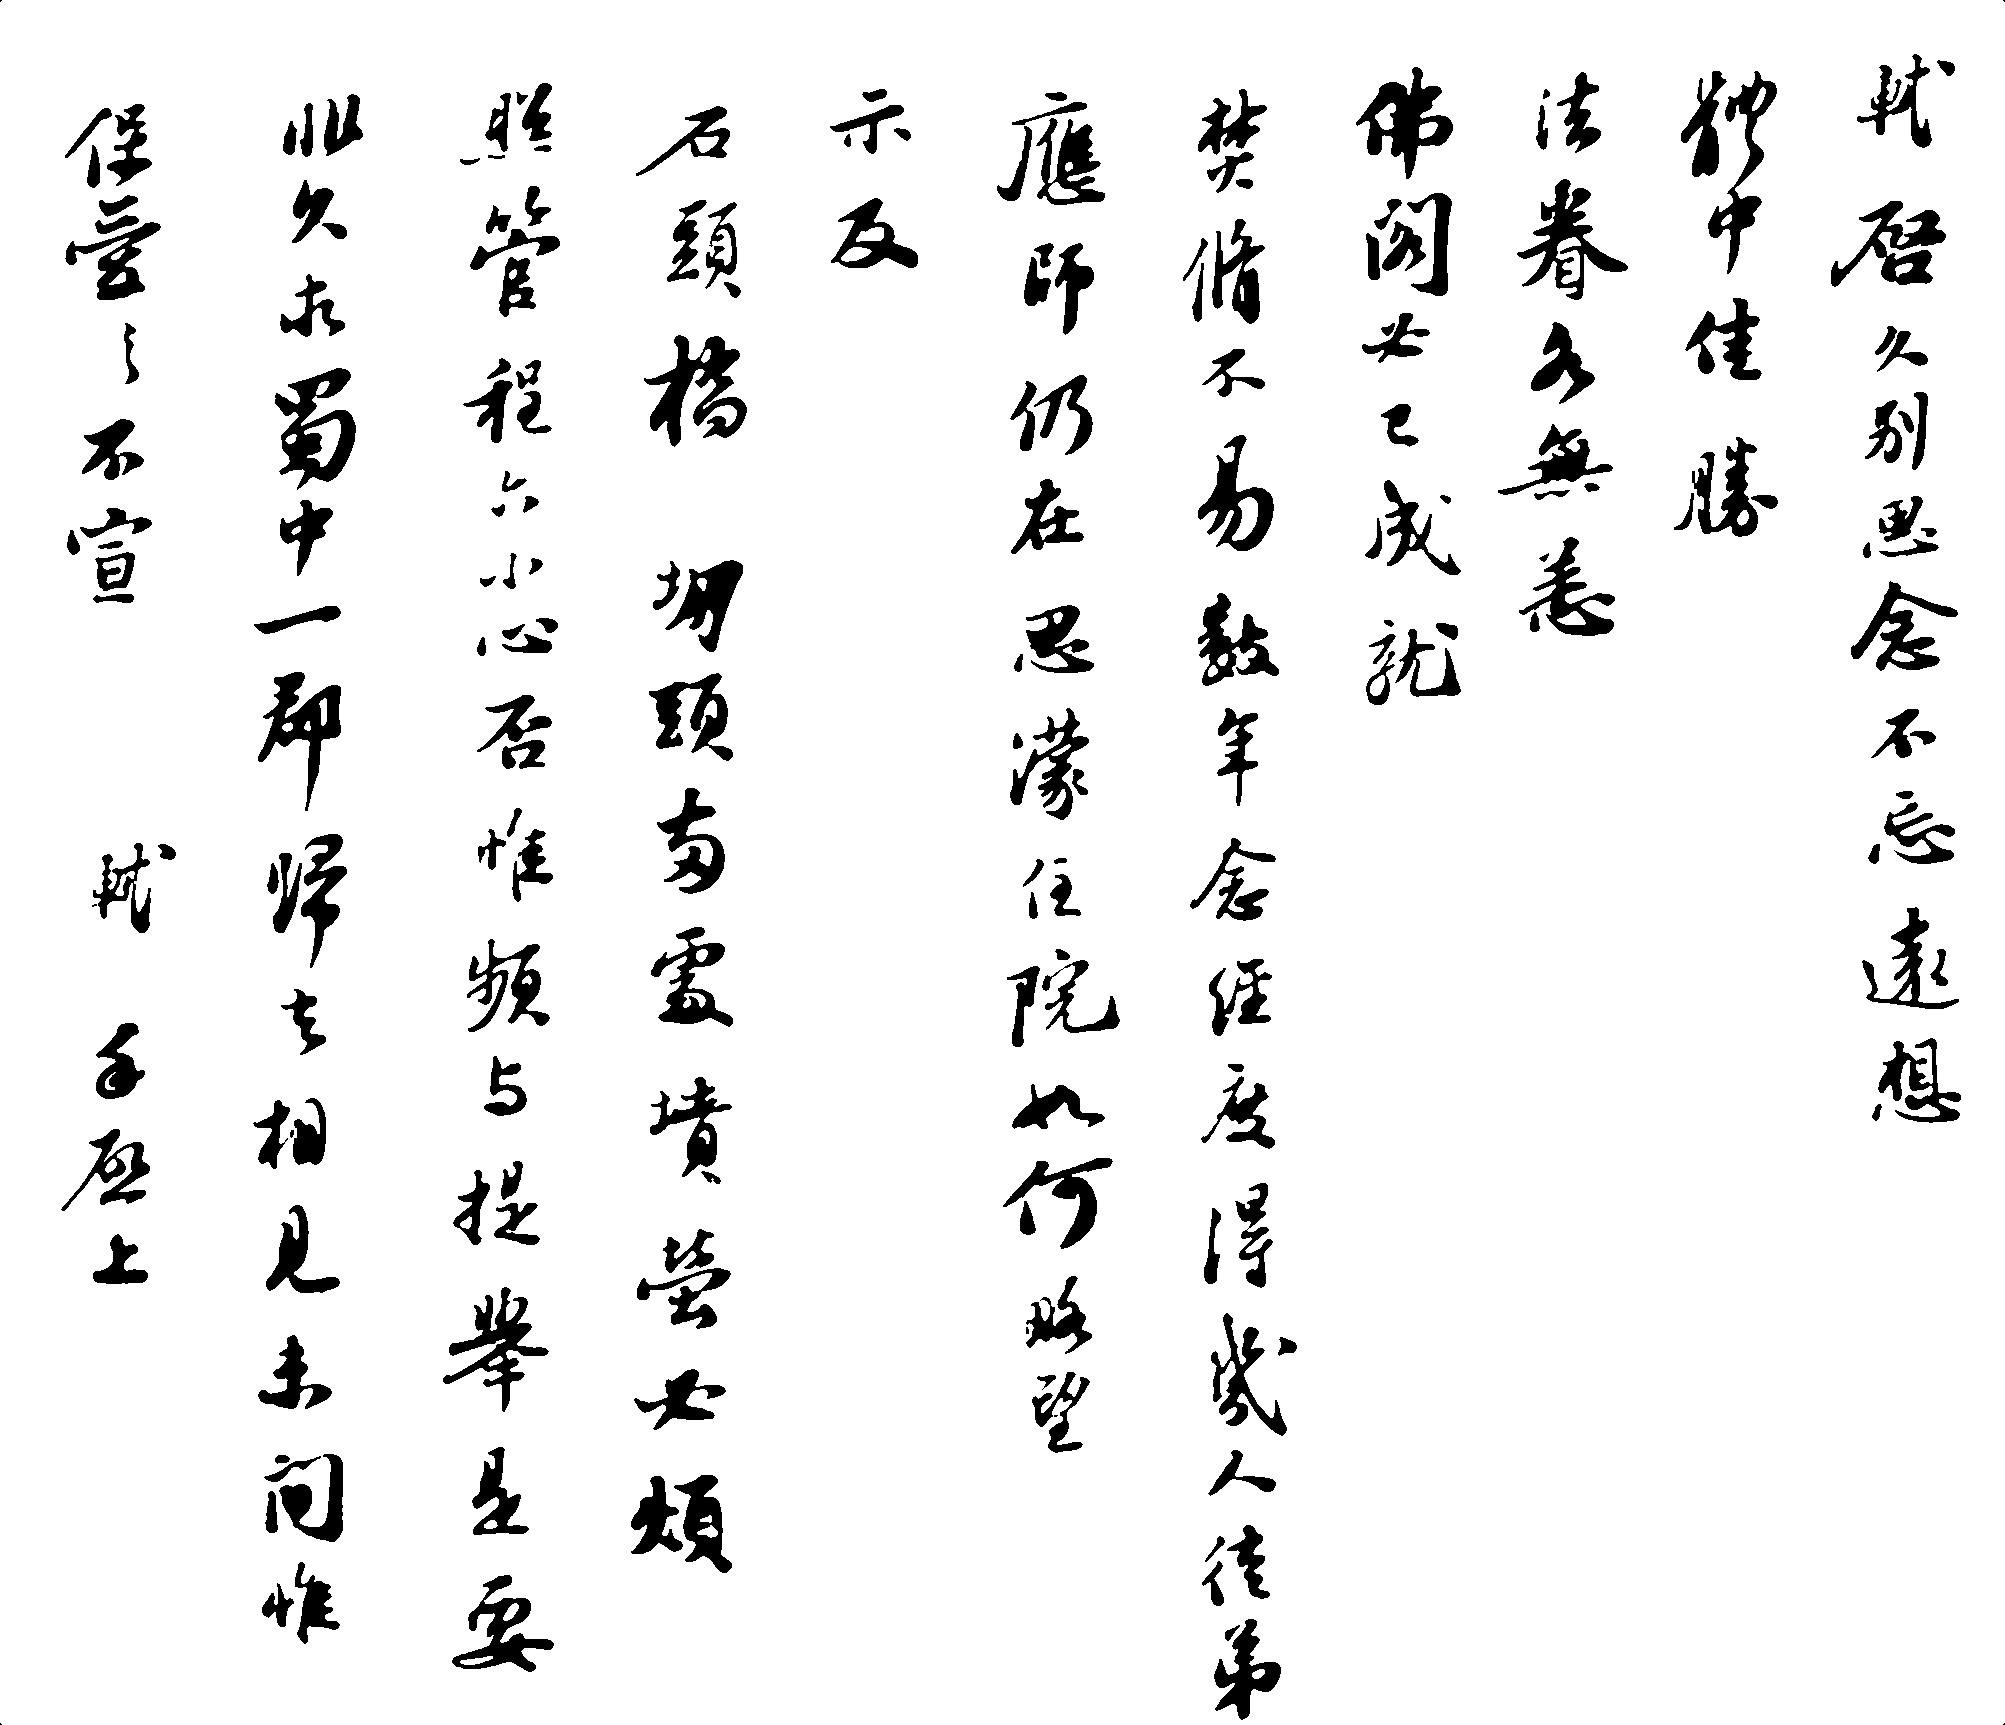 軾啓久別思念不忘遠想
體中佳勝
法眷各無恙
佛閣必已成就
焚脩不易數年念經度得幾人徒弟
應師仍在思濛住院如何略望
示及
石頭橋堋頭兩處墳塋必煩
照管程六小心否惟頻与提舉是要
非久求蜀中一郡歸去相見未間惟
保愛之不宣軾手啓上